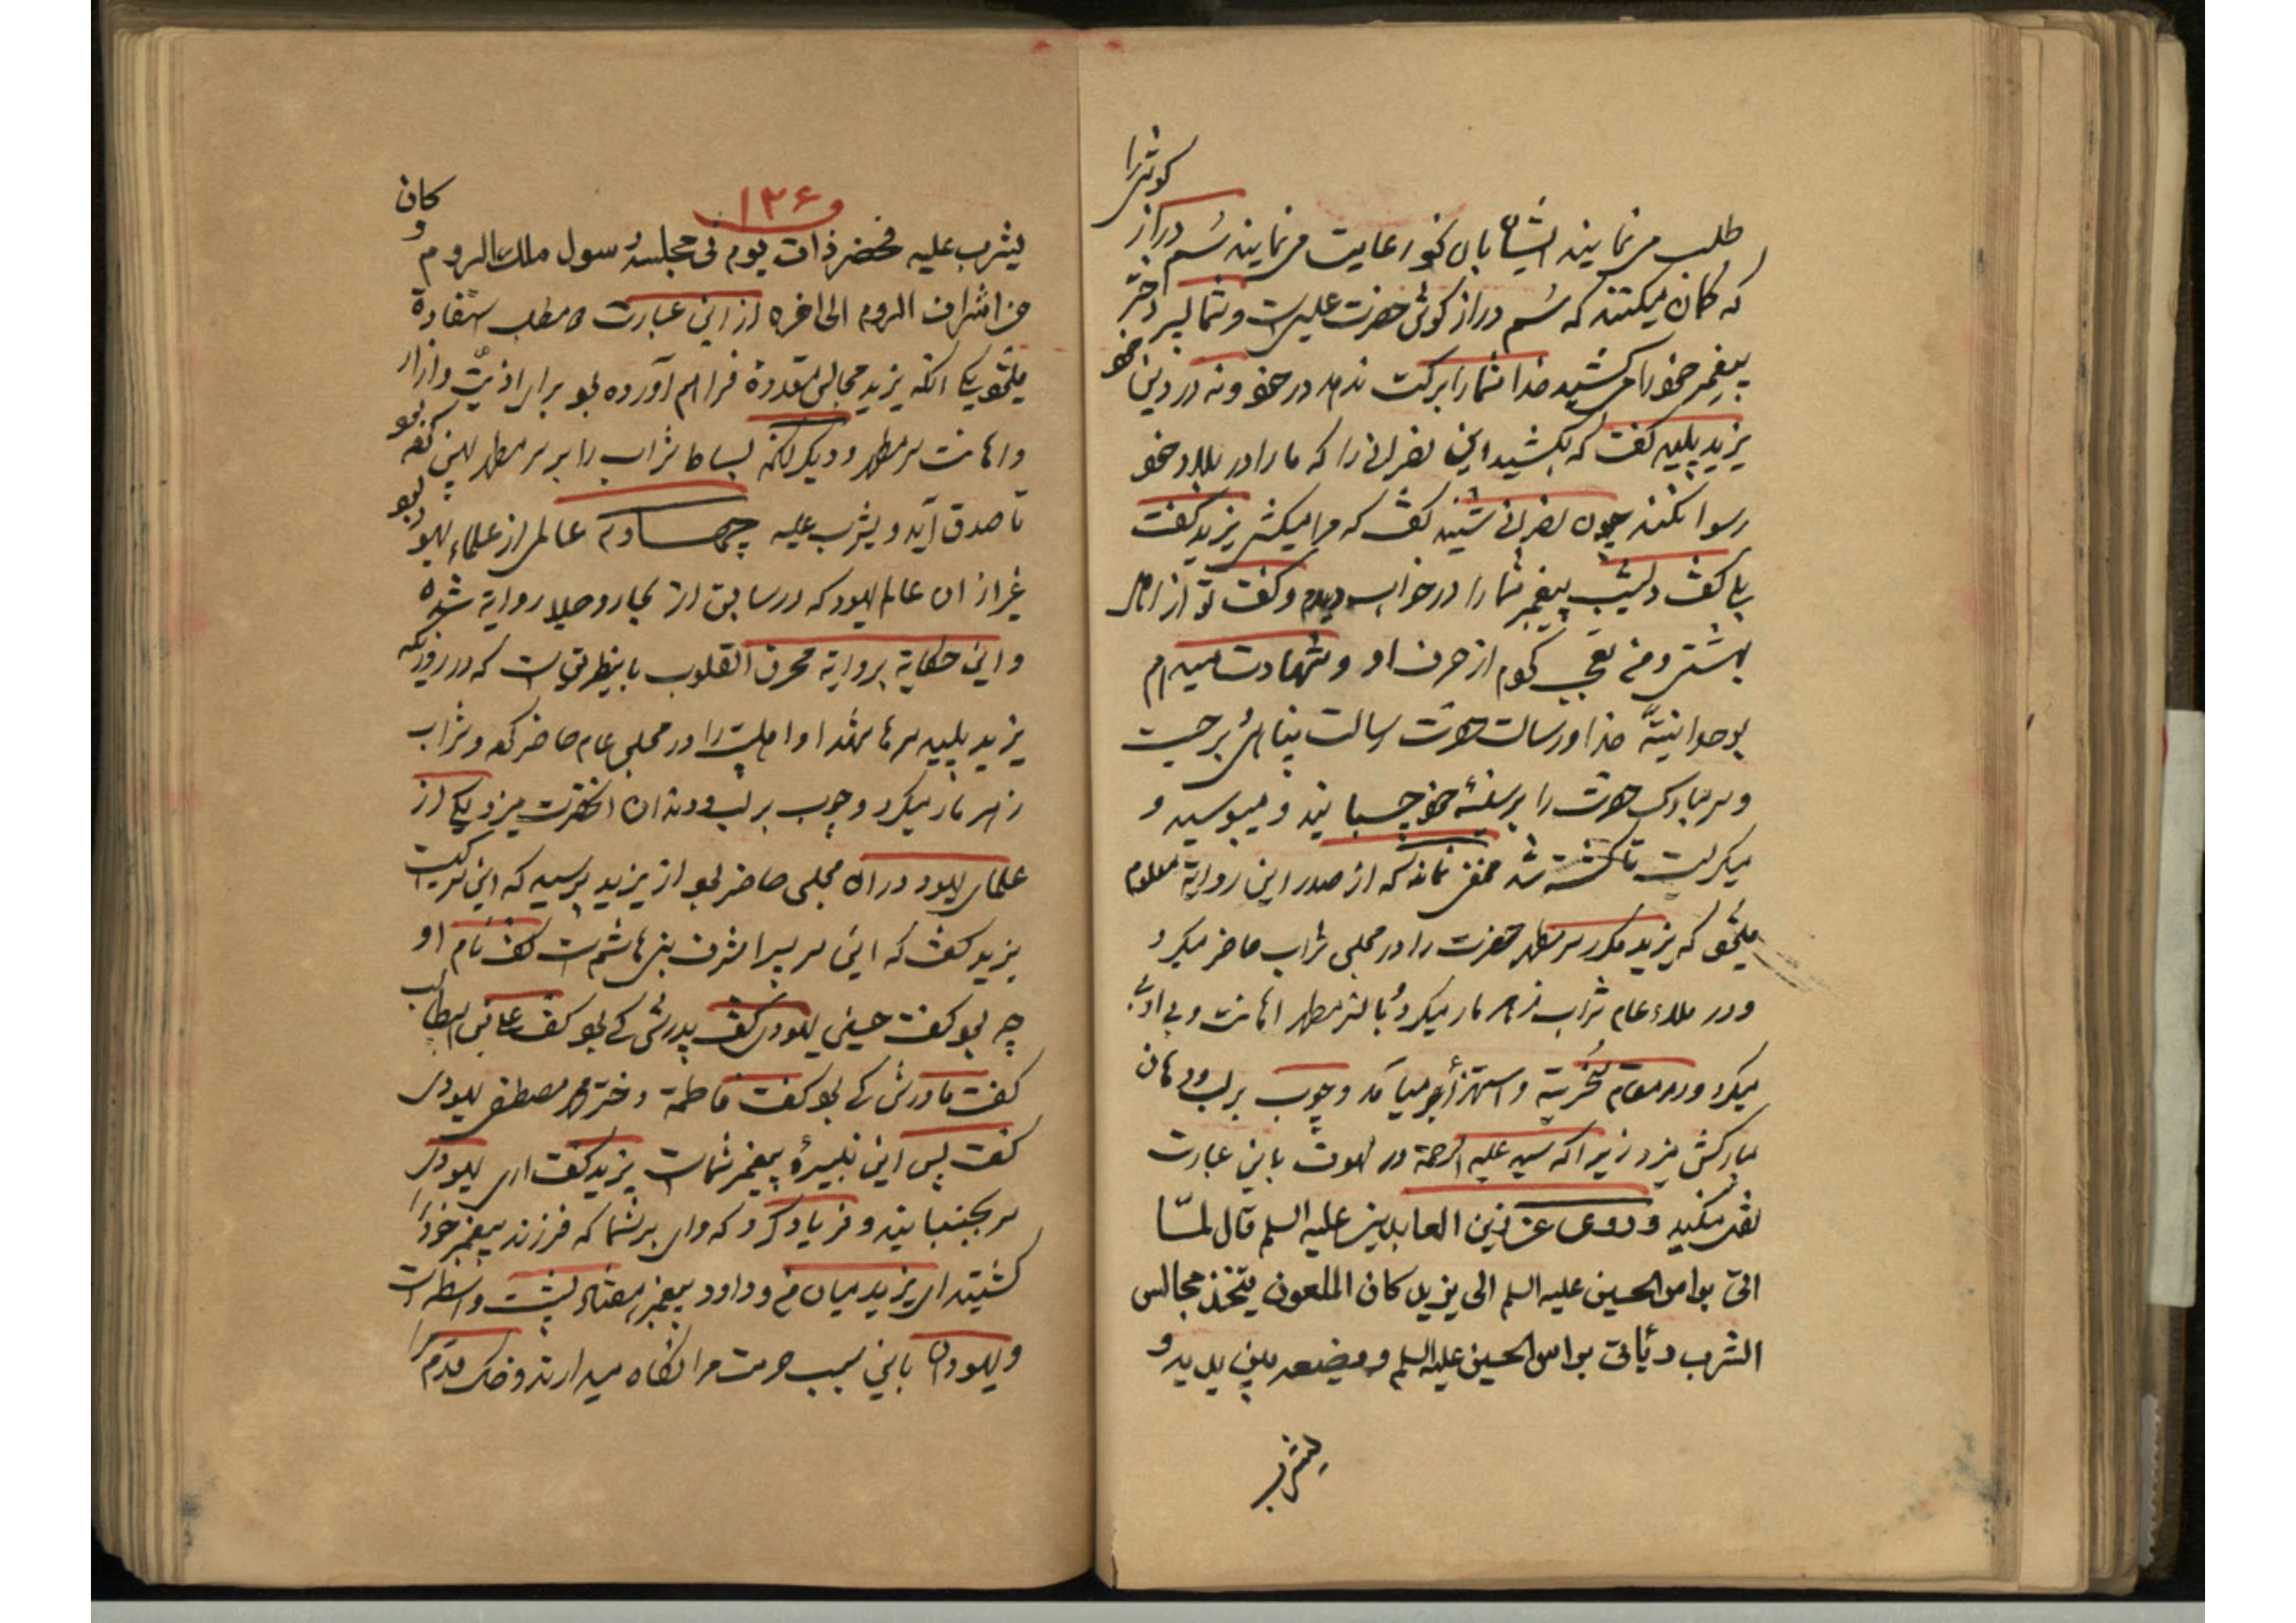 طلب می نمایند ایشان باین نحو رعایت می نمایند سُم دراز گوشرا
که کان میکنند که سُم دراز گوش حضرت عیسی است و شما پسر دختر
پیغمبر خود را می کشید خدا شما را برکت ندهد در خود و نه در دین خود
یزید پلید گفت که بکشید این نصرانی را که ما را در بلاد خود
رسوا نکند چون نصرانی شنید گفت که مرا میکشی یزید گفت
بلی گفت دیشب پیغمبر شما را در خواب دیدم و گفت تو از اهل
بهشتی و من تعجب کردم از حرف او و شهادت میدهم
بوحدانیتّ خدا و رسالت حضرت رسالت پناهی برجست
و سر مبارک حضرت را بر سینهٔ خود چسبانید و میبوسید و
میگریست تا کشته شد مخفی نماند که از صدر این روایة معلوم
میشود که یزید مکرر سر مطهر حضرت را در مجلس شراب حاضر میکرد
و در ملاء عام شراب زهر مار میکرد و بالسر مطهر اهانت و بی ادبی
میکرد و در مقام سُخریّة و استهزأ بر میآمد و چوب بر لب و دهان
مبارکش میزد زیرا که سید علیه الرحمة در لهوف باین عبارت
نقل میکند و روی عن زین العابدین علیه السلم قال لمّا
اتی براس الحسین علیه السلم الی یزید کان الملعون یتخذ مجالس
الشرب و یأتی براس الحسین علیه السلم و یضعه بین یدیه و
یشرب
۱۳۶
یشرب علیه فحضر ذات یوم فی مجلسه رسول ملک الروم و کان
من اشراف الروم الی اخره از این عبارت دو مطلب استفادة
میشود یکی انکه یزید مجالس متعددة فراهم آورده بود برای اذیّت و ازار
و اهانت سر مطهر و دیگر انکه بساط شراب را بر سر مطهر پهن کرده بود
تا صدق آید و یشرب علیه چهارم عالمی از علماء یهود بود
غیر از ان عالم یهود که در سابق از بحار و جلا روایة شده
و این حکایة بروایة محرق القلوب باینطریق است که در روزیکه
یزید پلید سرها شهدا و اهلبیت را در مجلس عام حاضر کرد و شراب
زهر مار میکرد و چوب بر لب و دندان انحضرت میزد یکی از
علمای یهود در ان مجلس حاضر بود از یزید پرسید که این سر کیست
یزید گفت که این سر پسر اشرف بنی هاشم است گفت نام او
چه بود گفت حسین یهودی گفت پدرش کی بود گفت علی بن ابیطالب
گفت مادرش کی بود گفت فاطمة دختر محمد مصطفی یهودی
گفت پس این نبیرهٔ پیغمبر شما است یزید گفت اری یهودی
سر بجنبانید و فریاد کرد که وای بر شما که فرزند پیغمبر خود را
کشتید ای یزید میان من و داود پیغمبر هفتاد پشت واسطه است
و یهودان باین سبب حرمت مرا نگاه میدارند و خاک قدم مرا